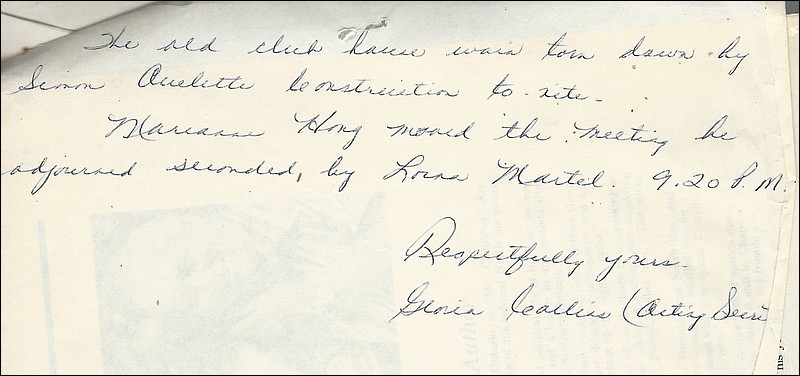 The old club house was torn down by
Simon Ouelette Construction to-nite.
Marianne Hong moved the meeting be
adjourned seconded by Lorna Martel. 9.20 P.M.
Respectfully yours.
Gloria (Acting Secr